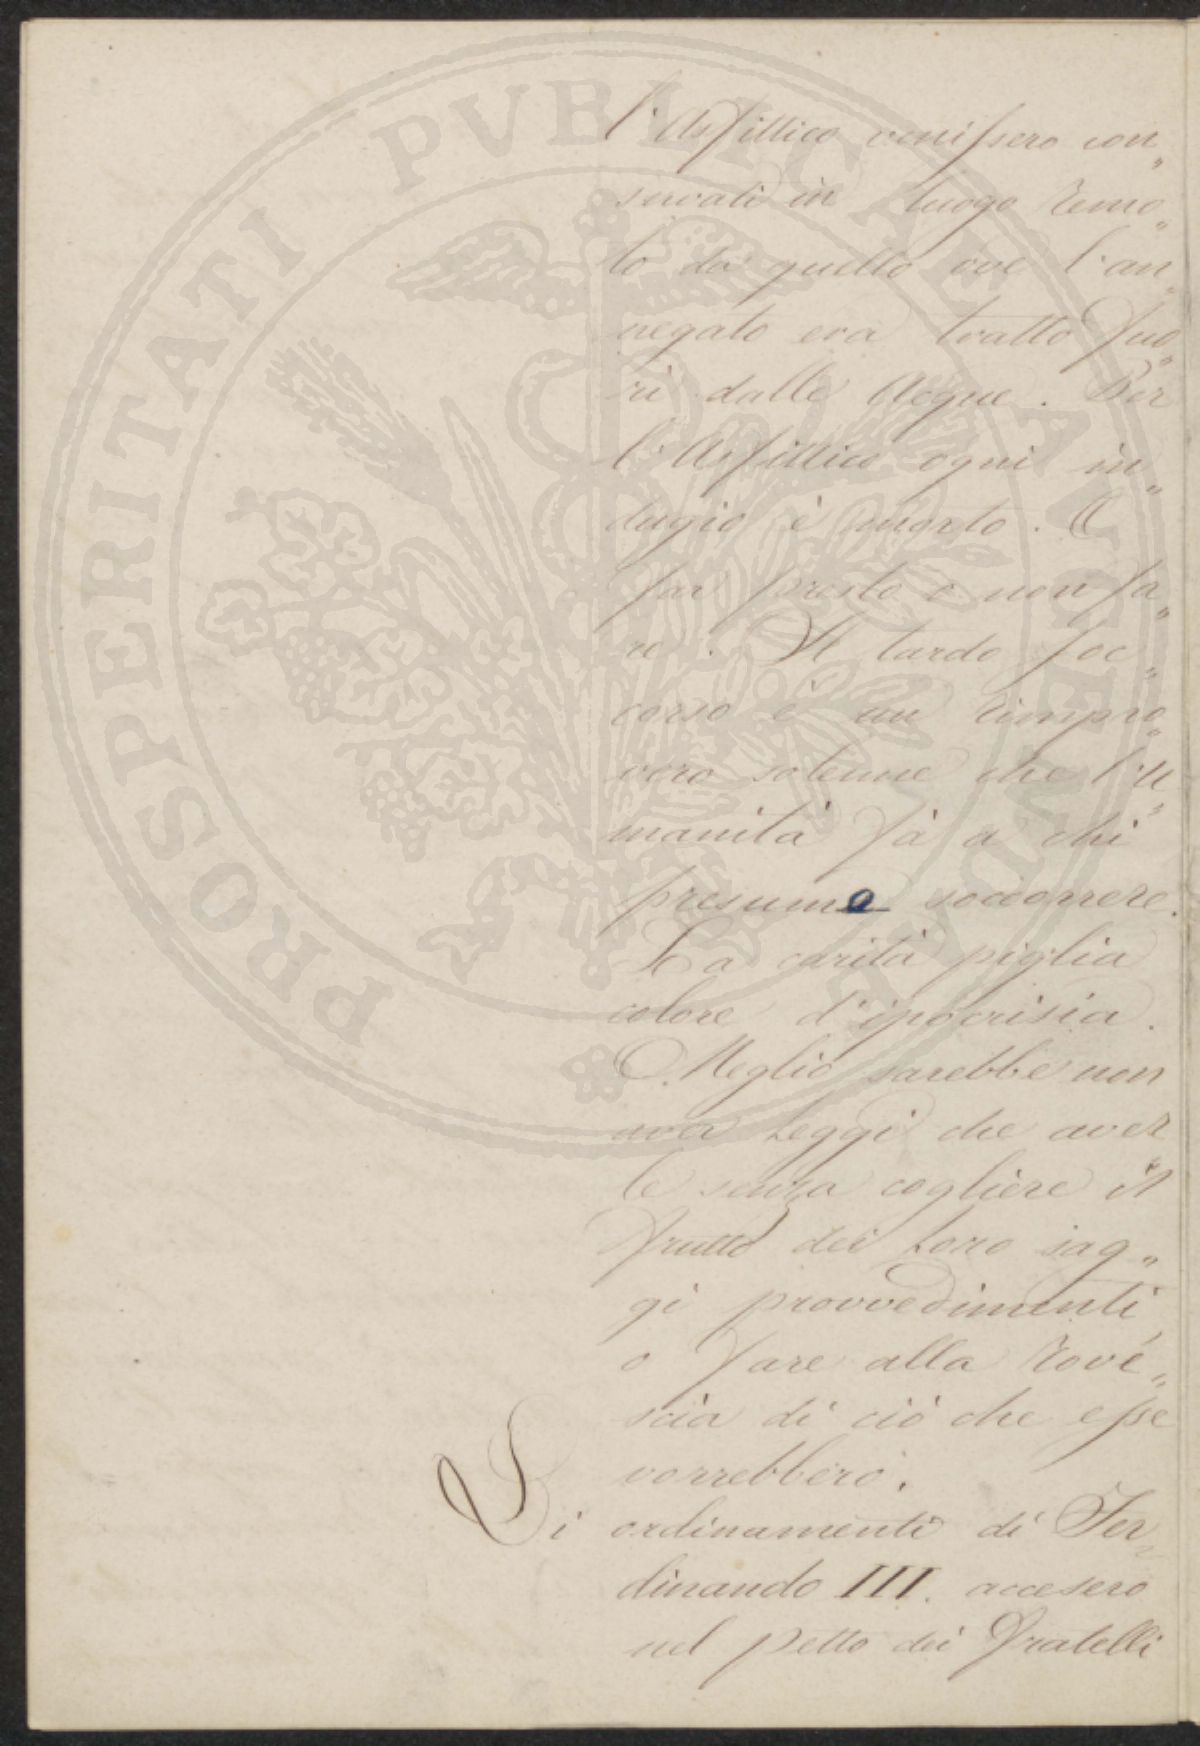 l'Asfittico venissero con„
servati in luogo remo„
to da quello ove l'an„
negato era tratto fuo„
ri dalle Acque. Per
l'Asfittico ogni in„
dugio è morto. O
far presto o non fa„
re. Il tardo soc„
corso è un rimpro„
vero solenne che l'U„
manità fà a chi
presume soccorrere.
La carità piglia
colore d'ipocrisia.
Meglio sarebbe non
aver Leggi che aver
le senza cogliere il
frutto dei loro sag„
gi provvedimenti,
o fare alla rove„
scia di ciò che esse
vorrebbero.
Gi ordinamenti di Fer„
dinando III. accesero
nel petto dei Fratelli
PROSPERITATI PVBLICAE AVGENDAE